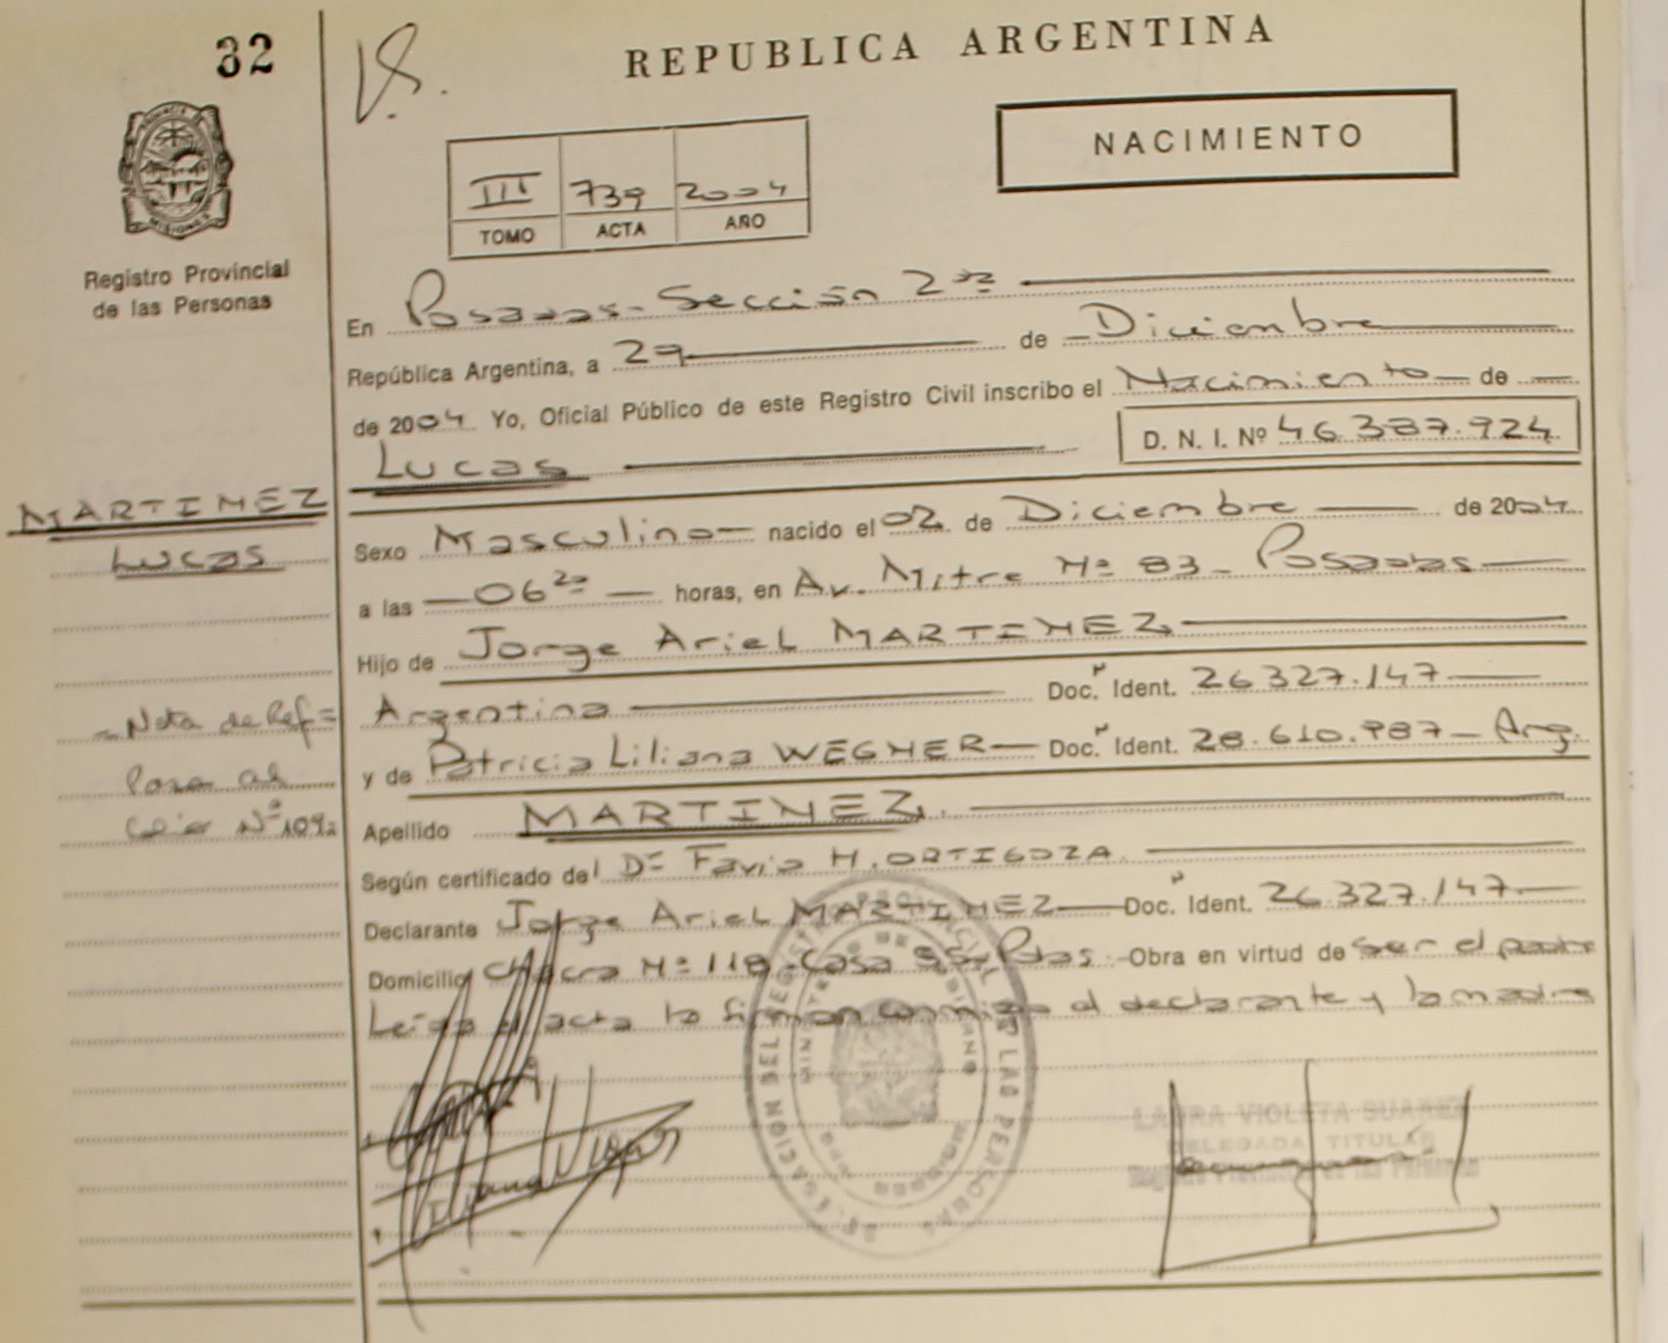 32
V.S.
REPUBLICA ARGENTINA
NACIMIENTO
III 739 2004
TOMO ACTA AÑO
MISIONES
Registro Provincial
de las Personas
En Posadas - Sección 2da
República Argentina, a 29 de Diciembre
de 2004 Yo, Oficial Público de este Registro Civil inscribo el Nacimiento de
Lucas
D. N. I. Nº 46.387.924
MARTINEZ
Lucas
Sexo Masculino nacido el 02 de Diciembre de 2004
a las 06 horas, en Av. Mitre Nº 83 - Posadas
Hijo de Jorge Ariel MARTINEZ
Argentina Doc. Ident. 26.327.147
y de Patricia Liliana WEGNER Doc. Ident. 28.610.987 - Arg.
Apellido MARTINEZ
- Nota de Ref =
Pasa al
Nº 1092
Según certificado del Dr Favio H. ORTIGOZA
Declarante Jorge Ariel MARTINEZ Doc. Ident. 26.327.147
Domicilio Chacra Nº 118 - Casa Pdas. - Obra en virtud de ser el padre
Leída el acta la firman conmigo el declarante y la madre
LAURA VIOLETA SUAREZ
DELEGADA TITULAR
Registro Provincial de las Personas